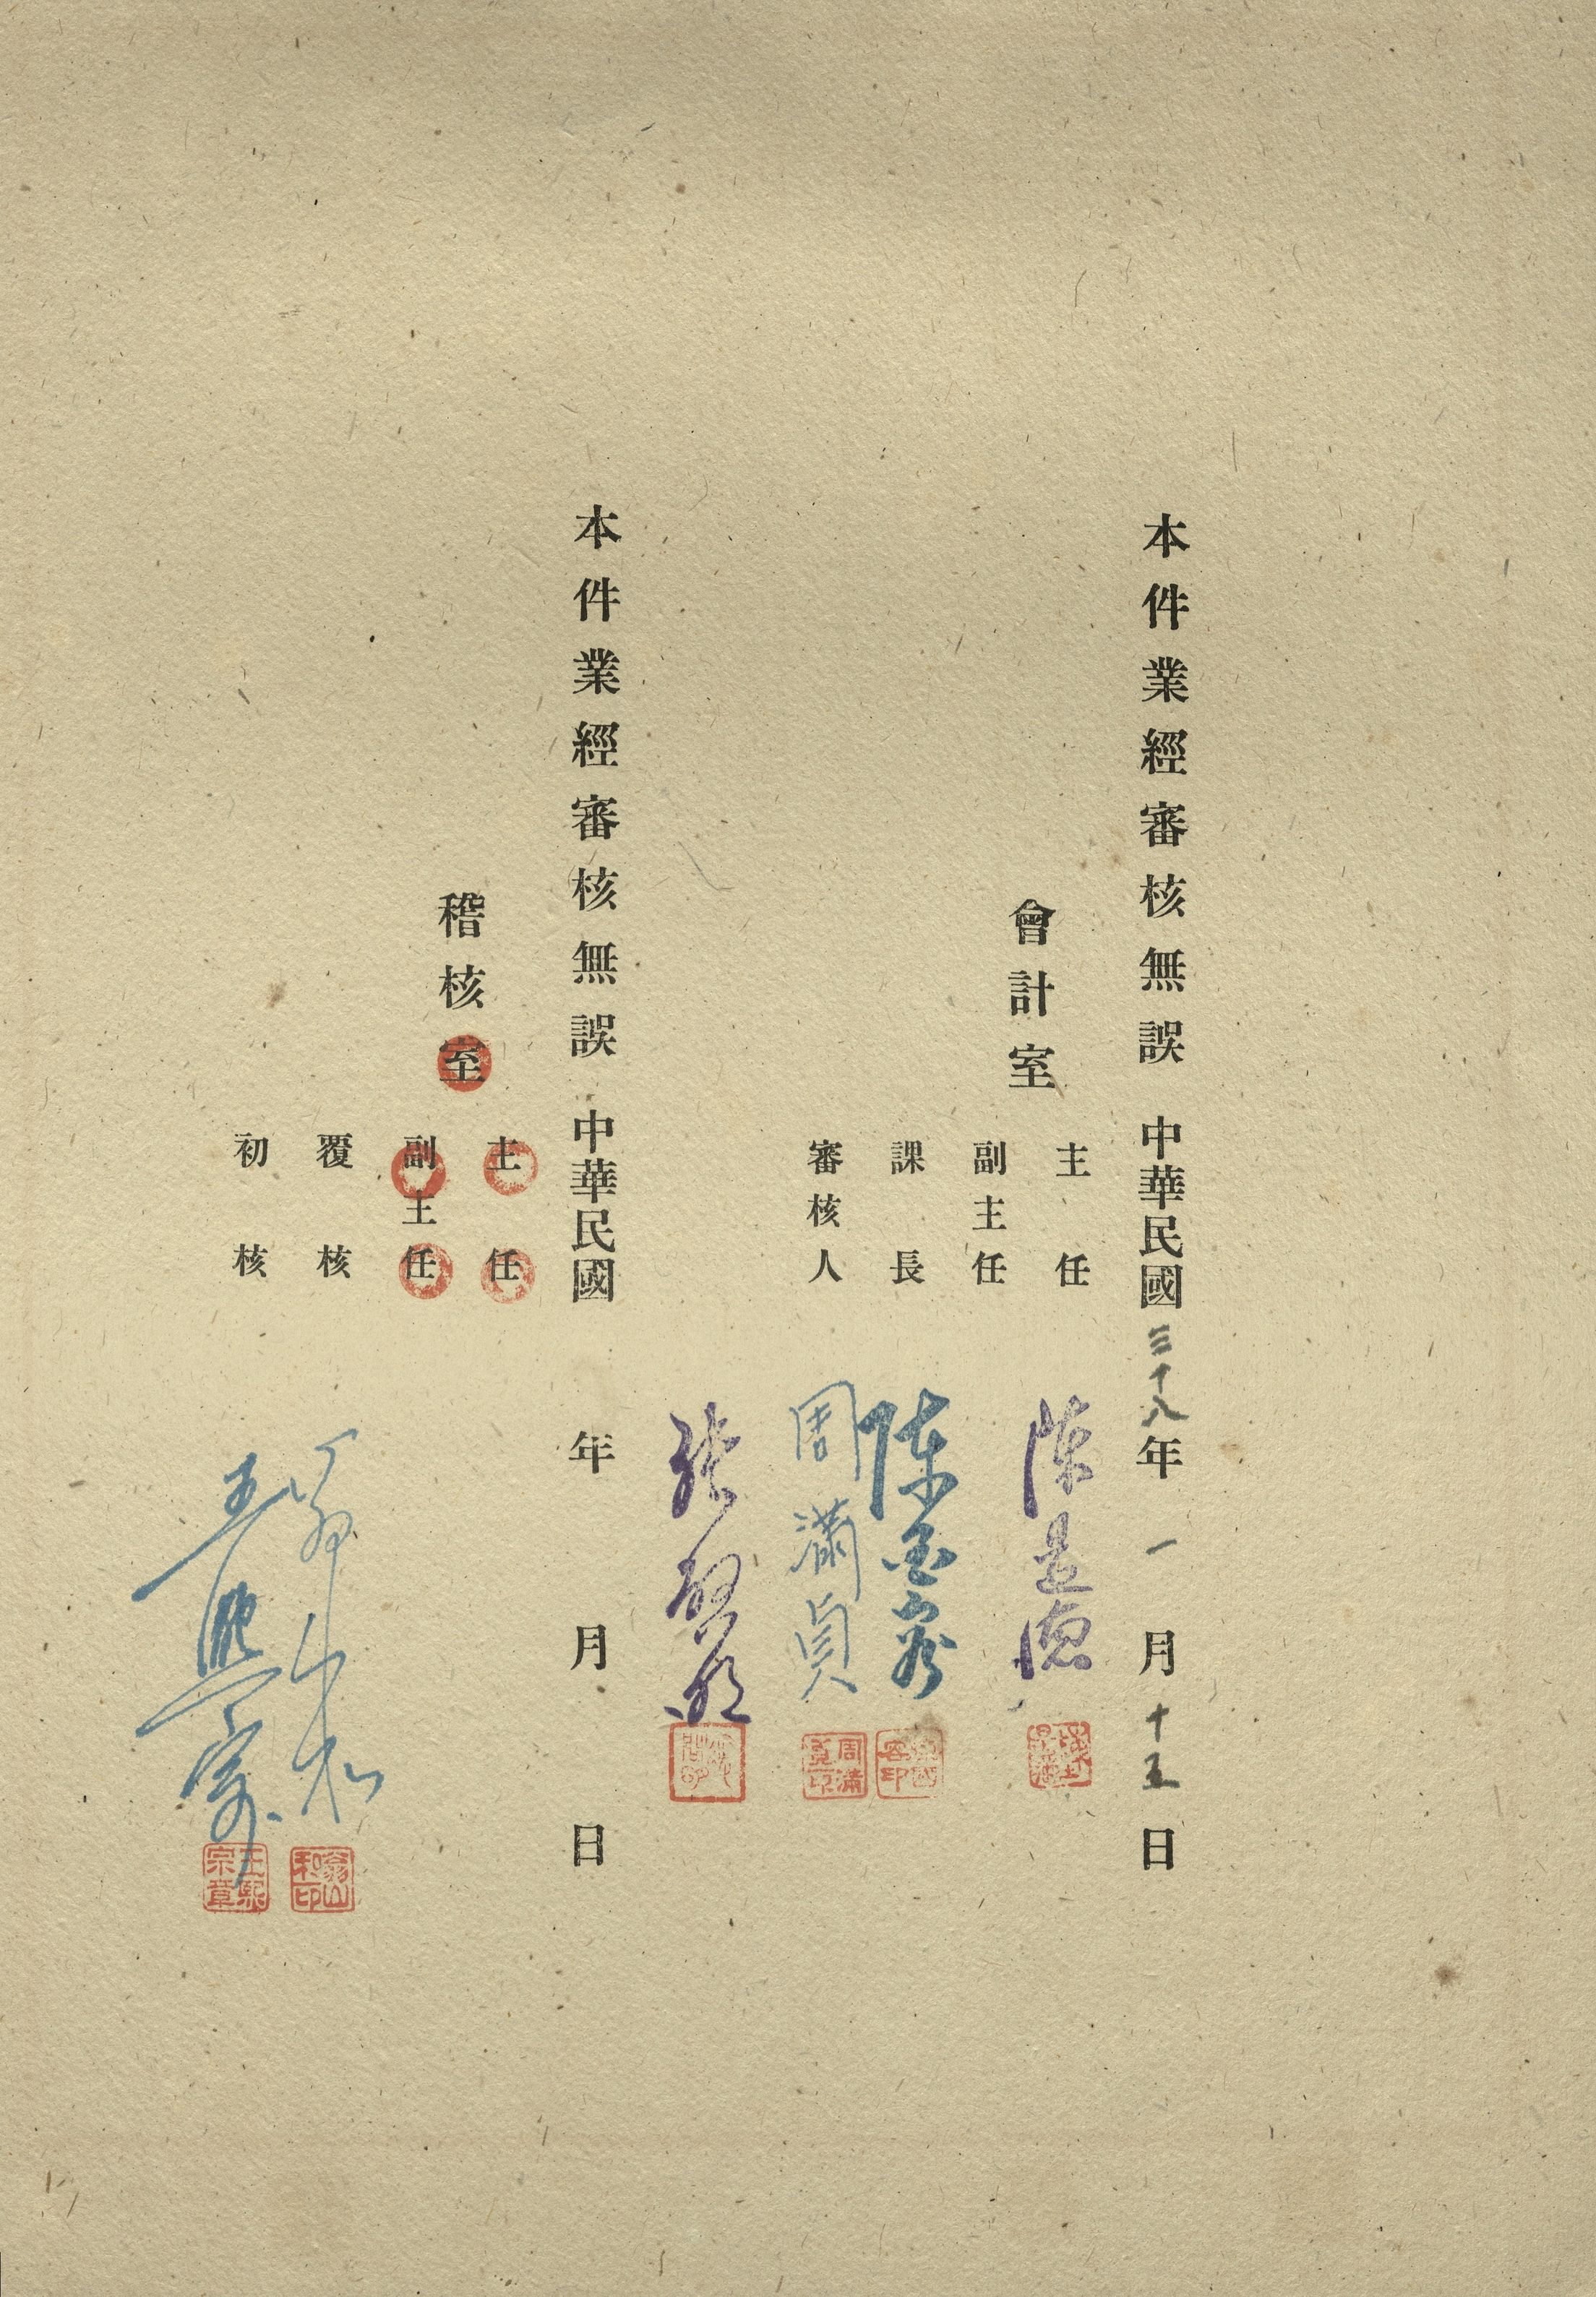 本件業經審核無誤 中華民國三十八年一月十五日
會計室
主任 陳
副主任
課長 陳
審核人 周滿貞
周滿
本件業經審核無誤 中華民國 年 月 日
稽核室
主任
副主任
覆核
初核 王熙宗
王熙宗章